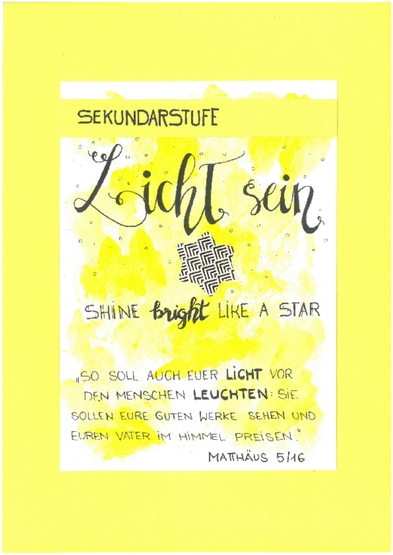 SEKUNDARSTUFE
Licht sein
SHINE bright LIKE A STAR
„SO SOLL AUCH EUER LICHT VOR
DEN MENSCHEN LEUCHTEN: SIE
SOLLEN EURE GUTEN WERKE SEHEN UND
EUREN VATER IM HIMMEL PREISEN."
MATTHÄUS 5/16